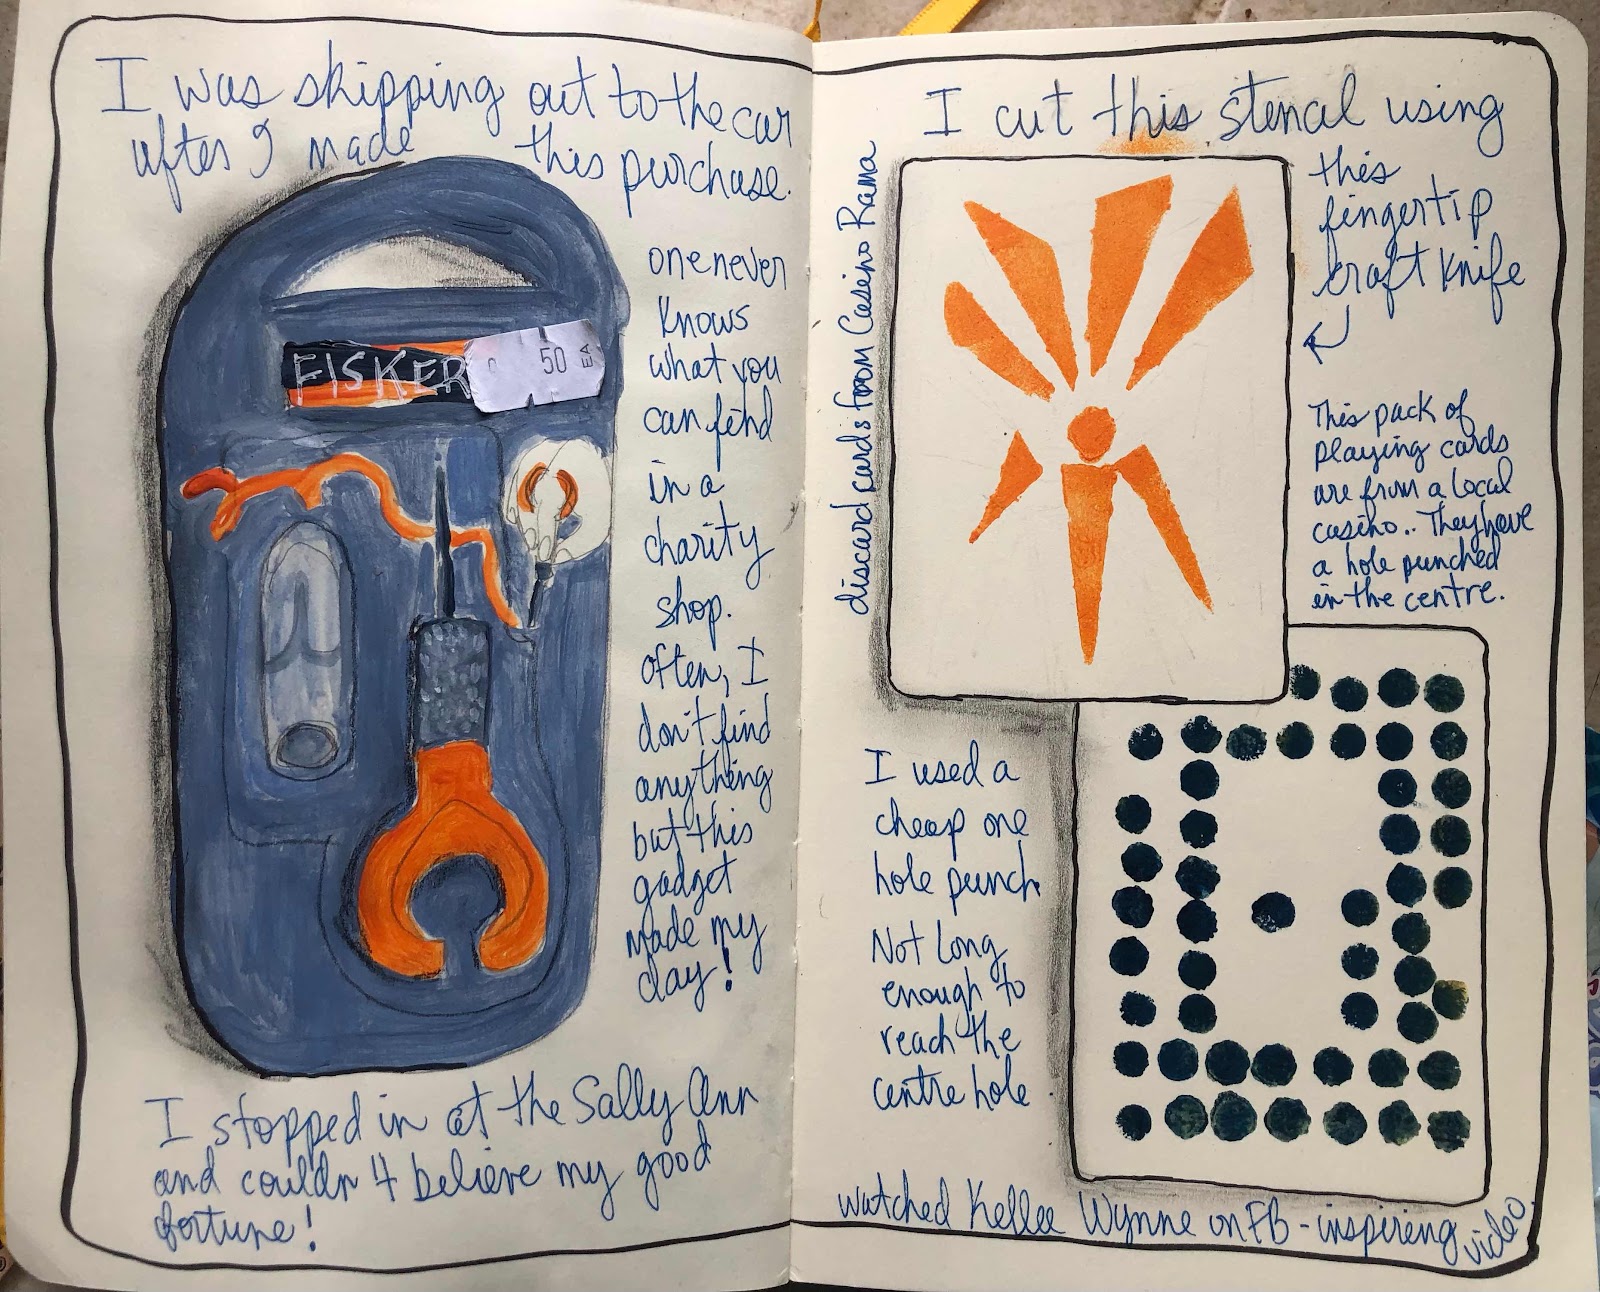 I was skipping out to the car
after I made this purchase.
FISKER
50 EA
one never
knows
what you
can find
in a
charity
shop.
often, I
don't find
anything
but this
gadget
made my
day!
I stopped in at the Sally Ann
and couldn't believe my good
fortune!
I cut this stencal using
this
fingertip
craft knife
discard cards from Casino Rama
This pack of
playing cards
are from a local
casino.. They have
a hole punched
in the centre.
I used a
cheap one
hole punch
Not long
enough to
reach the
centre hole.
watched Kellee Wynne on FB - inspireing video.